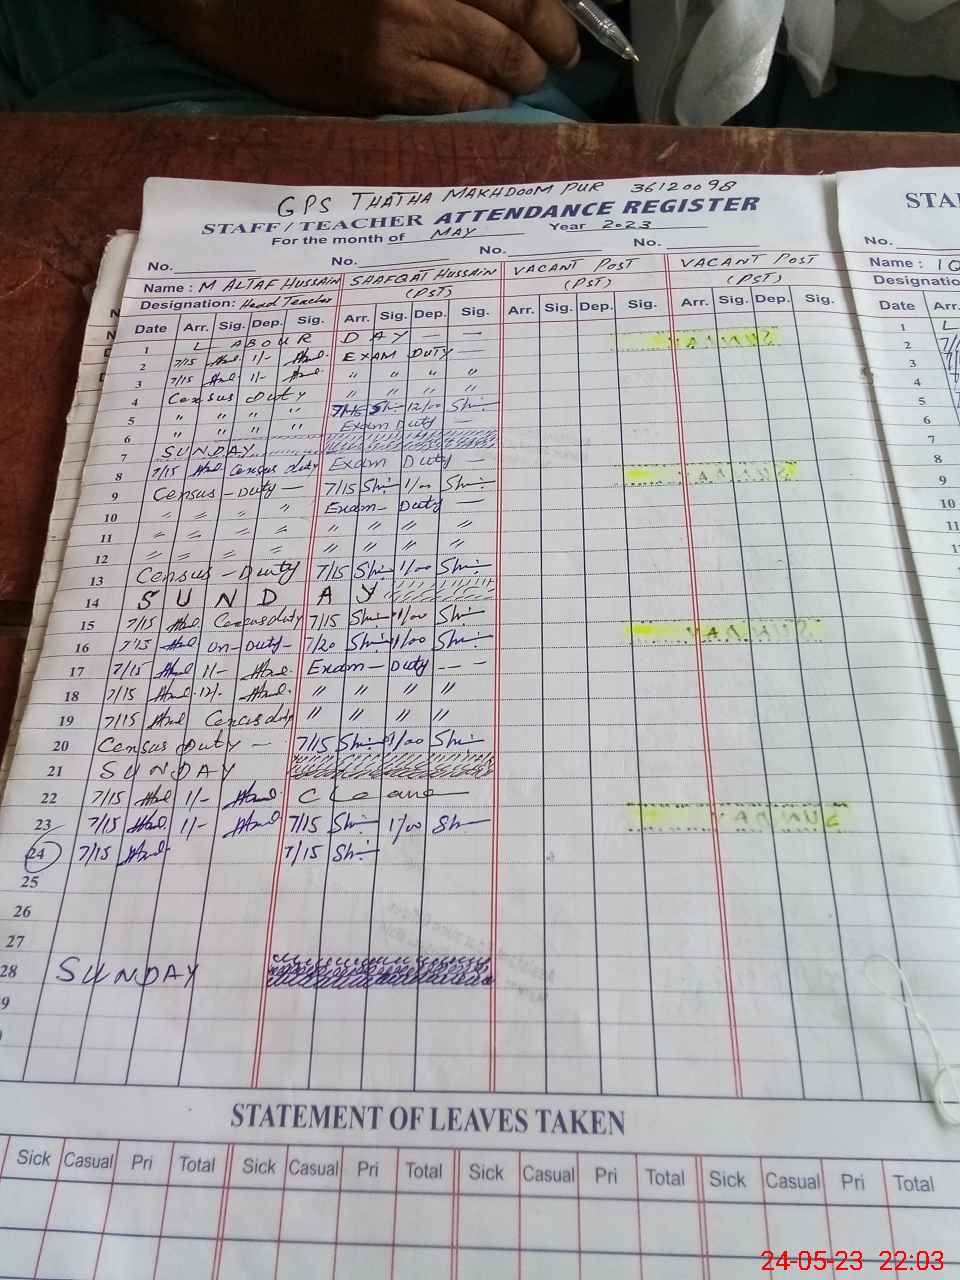 GPS THATHA MAKHDOOM PUR 36120098
STAFF/TEACHER ATTENDANCE REGISTER
For the month of MAY Year 2023
No. No. No. No.
Name : M ALTAF HUSSAIN SHAFQAT HUSSAIN VACANT POST VACANT POST
Designation: Head Teacher (PST) (PST) (PST)
Date Arr. Sig. Dep. Sig. Arr. Sig. Dep. Sig. Arr. Sig. Dep. Sig. Arr. Sig. Dep. Sig.
1 LABOUR DAY
2 7/15 1/- EXAM DUTY
3 7/15 1/- " " " "
4 Census Duty " " " "
5 " " " " 7/15 12/00
6 " " " " Exam Duty
7 SUNDAY
8 7/15 Census duty Exam Duty
9 Census - Duty 7/15 1/00
10 " " " " Exam - Duty
11 " " " " " " " "
12 " " " " " " " "
13 Census - Duty 7/15 1/00
14 SUNDAY
15 7/15 Census duty 7/15 1/00
16 7/15 On-Duty- 7/20 1/00
17 7/15 1/- Exam - Duty
18 7/15 12/- " " " "
19 7/15 Census duty " " " "
20 Census Duty - 7/15 1/00
21 SUNDAY
22 7/15 1/-
23 7/15 1/- 7/15 1/00
24 7/15 7/15
25
26
27
28 SUNDAY
9
STATEMENT OF LEAVES TAKEN
Sick Casual Pri Total Sick Casual Pri Total Sick Casual Pri Total Sick Casual Pri Total
STA
No.
Name :
Designatio
Date Arr.
1
2
3
4
5
6
7
8
9
10
24-05-23 22:03